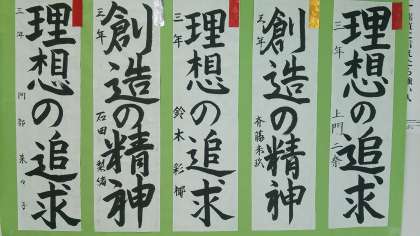 理想の追求
三年 上門 二奈
創造の精神
三年 斉藤未玖
理想の追求
三年 鈴木 彩椰
創造の精神
三年 石田 梨倫
理想の追求
三年 阿部 菜々子